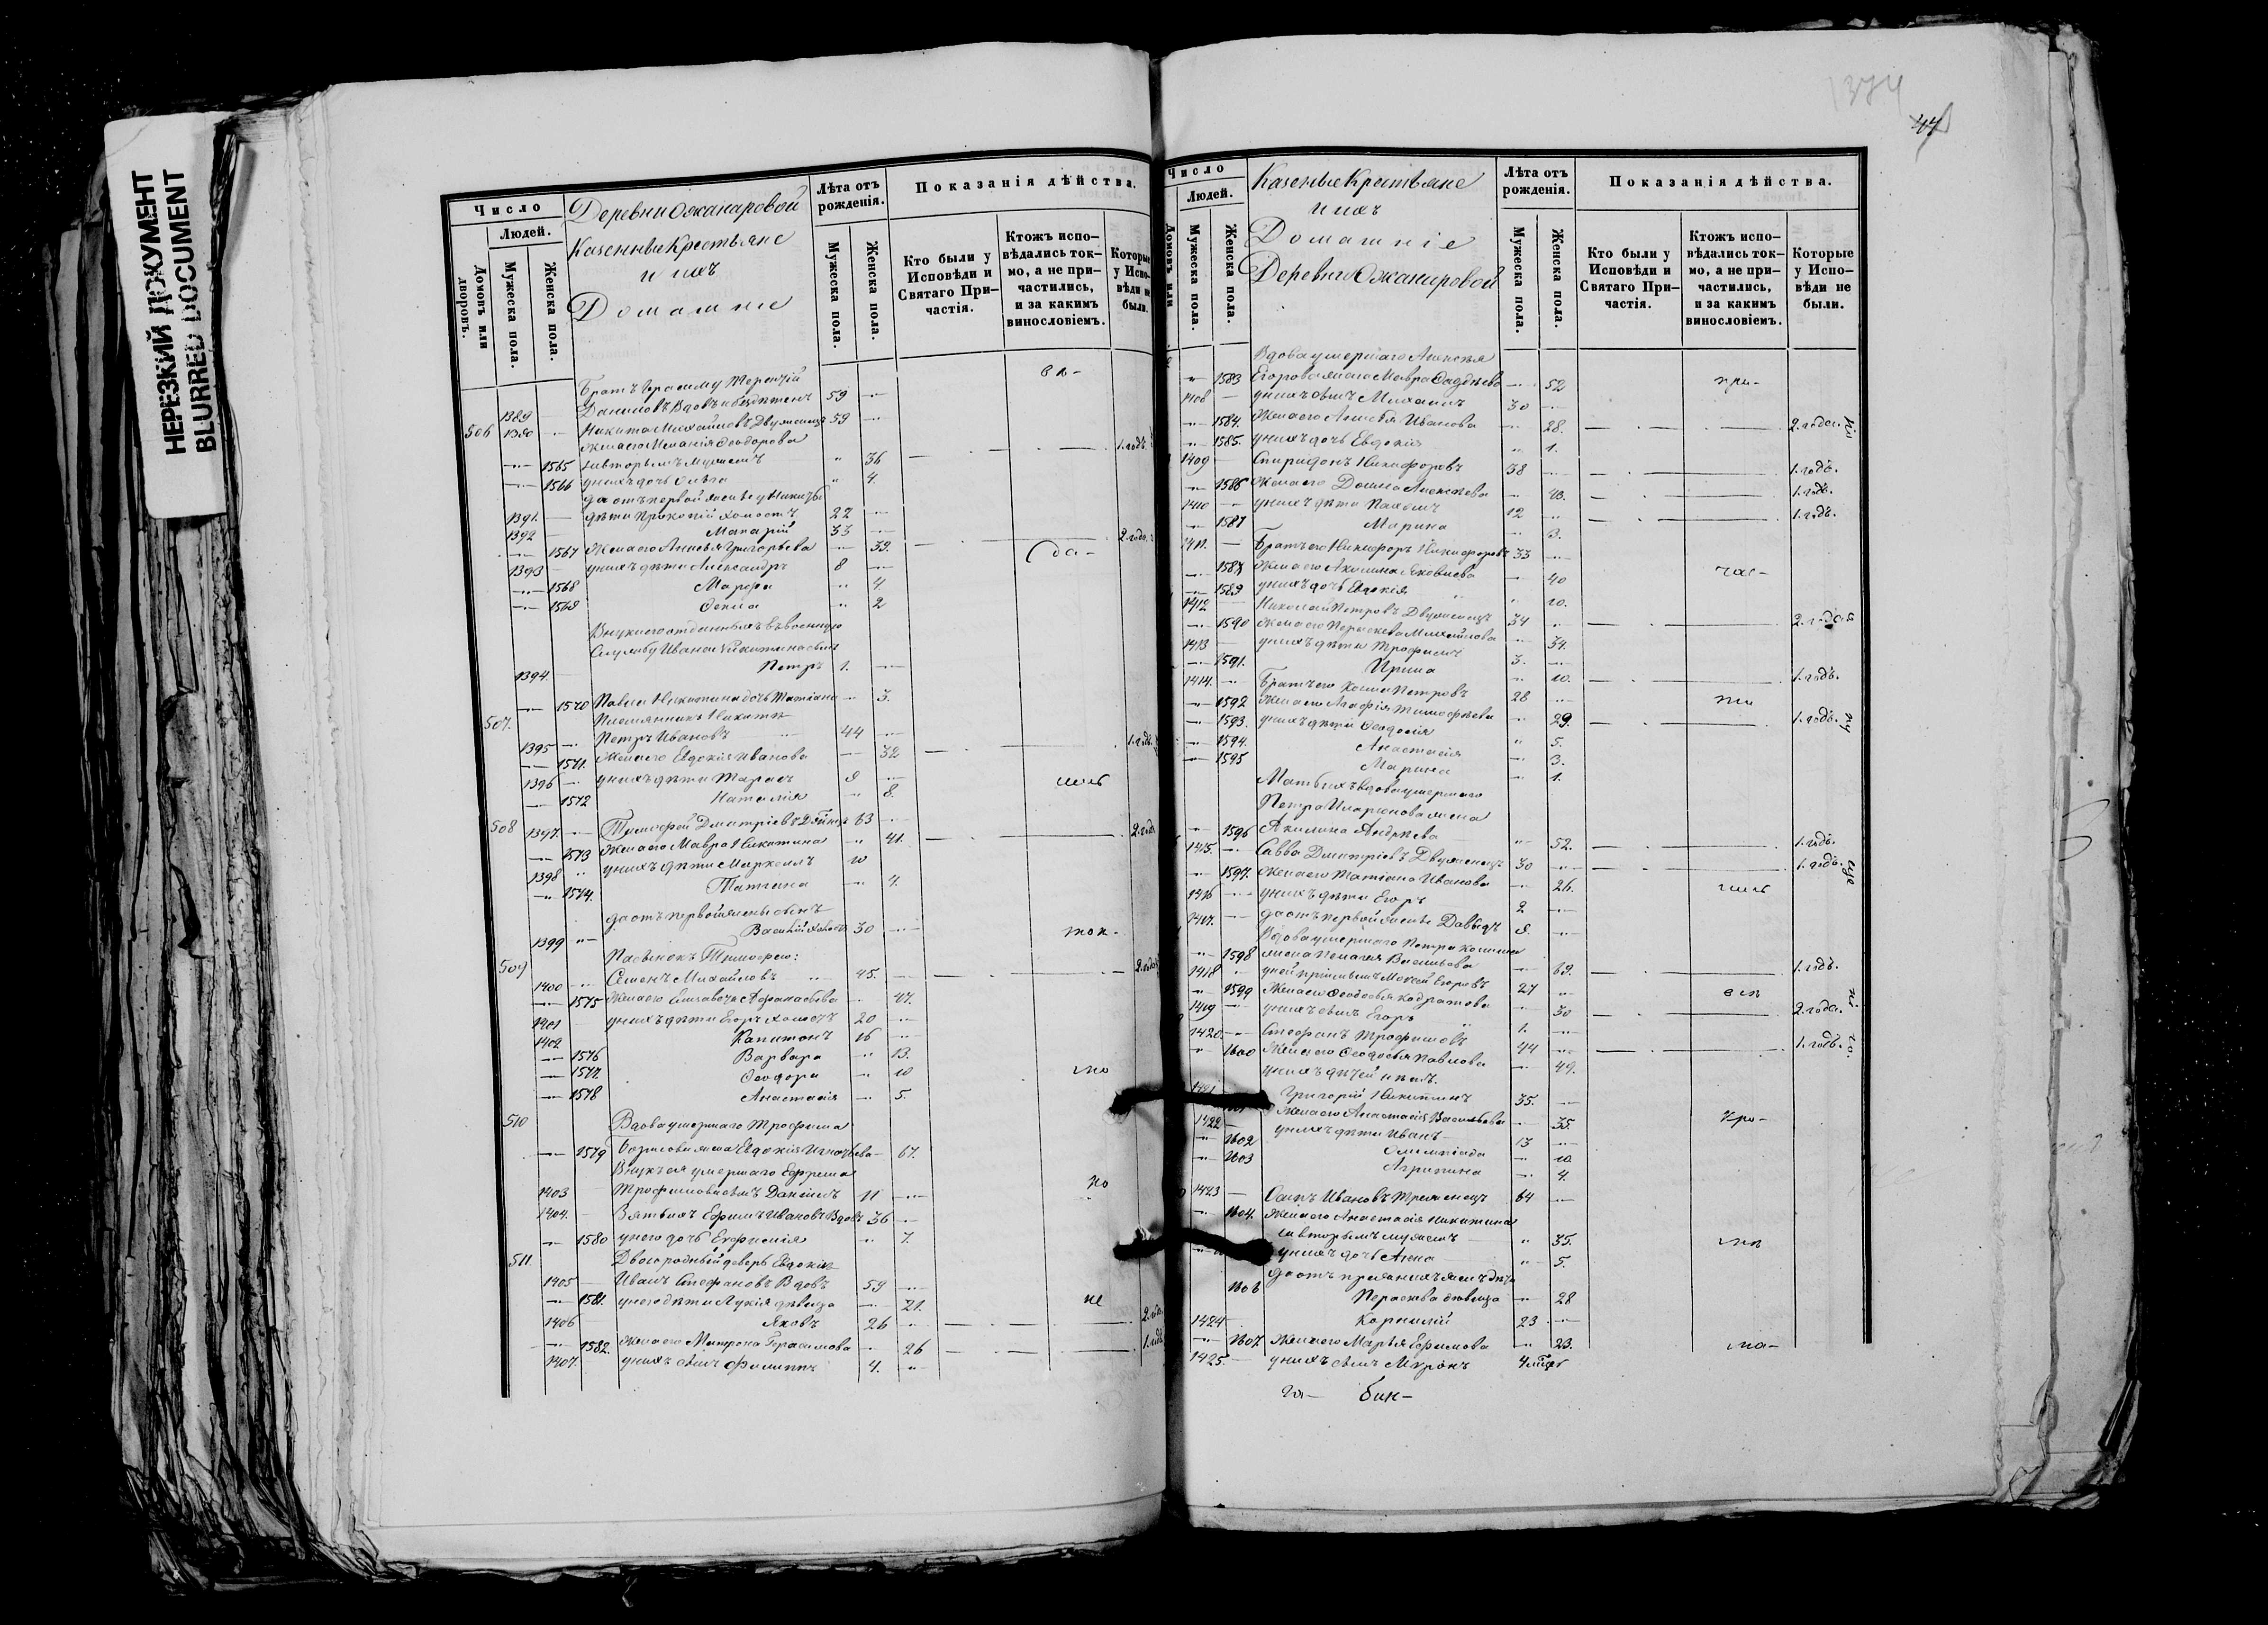 НЕРЕЗКИЙ ДОКУМЕНТ
BLURRED DOCUMENT
Число
Людей.
Домовъ или дворовъ.
Мужеска пола.
Женска пола.
Деревни Ожанаровой
Казенные Крестьяне
и ихъ
Домашніе
Лѣта отъ рожденія.
Мужеска пола.
Женска пола.
Показанія дѣйства.
Кто были у Исповѣди и Святаго Причастія.
Ктожъ исповѣдались токмо, а не причастились, и за какимъ винословіемъ.
Которые у Испо-вѣди не были.
Братъ Терентій
1389 Даниловъ Вдовъ и бездѣтенъ 59
506 1390 Никита Михайловъ Двуженецъ 59
Жена его Меланія Ѳеодорова
1565 вторымъ мужемъ 36 1. годъ.
1566 у нихъ дочь Ольга 4.
да отъ первой жены у Никиты
1391. дѣти Прокопій холостъ 22
1392 Макарій 33
1567 Жена его Григорьева 33. 2. года.
1393 у нихъ дѣти Александръ 8
1568 Марфа 4
1569 2
Внукъ его отданныхъ въ военную
службу Ивана Никитина сынъ
1394. Петръ 1.
1570 Павла Никитина дочь Татіана 3.
507. Племянникъ Никитѣ
1395 Петръ Ивановъ 44
1571. Жена его Евдокія Иванова 32 1. годъ.
1396 у нихъ дѣти Тарасъ 9
1572 Наталія 8.
508 1397. Тимофей Дмитріевъ 63
1573 Жена его Мавра Никитина 41. 2. года
1398 у нихъ дѣти Маркеллъ 10
1574. Татіана 4.
да отъ первой жены сынъ
1399 Василій холостъ 30
509 Пасынокъ Тимофею:
1400 Семенъ Михайловъ 45. 2. года
1575 Жена его Елисавета Афанасьева 47.
1401 у нихъ дѣти Егоръ холостъ 20
1402 Капитонъ 16
1576 Варвара 13.
1577. Ѳеодора 10
1578 Анастасія 5.
510 Вдова умершаго Трофима
1579 Борисова жена Евдокія Игнатьева 67.
Внукъ ея умершаго Ефрема
1403 Трофимова сынъ Даніилъ 11
1404. Зять ихъ Ефимъ Ивановъ Вдовъ 36
1580 у него дочь Евфимія 7.
511. Двоюродный деверь Евдокіи
1405 Иванъ Стефановъ Вдовъ 59
1581. у него дѣти Лукія дѣвица 21.
1406 Яковъ 26 2. года
1582. Жена его Матрона Герасимова 26 1. годъ
1407. у нихъ сынъ Филиппъ 4.
374
47
Число
Людей.
Домовъ или
Мужеска пола.
Женска пола.
Казенные Крестьяне
и ихъ
Домашніе
Деревни Ожанаровой
Лѣта отъ рожденія.
Мужеска пола.
Женска пола.
Показанія дѣйства.
Кто были у Исповѣди и Святаго Причастія.
Ктожъ исповѣдались токмо, а не причастились, и за какимъ винословіемъ.
Которые у Испо-вѣди не были.
Вдова умершаго Алексѣя
1583 Егорова жена Мавра Фаддѣева 52 при-
1408 у нихъ сынъ Михаилъ 30
1584. Жена его Иванова 28. 2. года.
1585. у нихъ дочь Евдокія 1.
1409 Спиридонъ Никифоровъ 38 1. годъ.
1586 Жена его Домна Алексѣева 40. 1. годъ.
1410 у нихъ дѣти Пахомъ 12 1. годъ.
1587 Марина 3.
1411. Братъ его Никифоръ Никифоровъ 33
1588 Жена его Акилина Яковлева 40 час-
1589 у нихъ дочь Евдокія 10.
1412 Николай Петровъ Двуженецъ 34 2. года
1590 Жена его Параскева Михайлова 34.
1413 у нихъ дѣти Трофимъ 3.
1591. Ирина 10. 1. годъ.
1414. Братъ его Косма Петровъ 28
1592 Жена его Агафія Тимофѣева 29. 1. годъ.
1593. у нихъ дѣти Ѳеодосія 5.
1594. Анастасія 3.
1595 Марина 1.
Мать ихъ вдова умершаго
Петра Иларіонова жена
1596 Акилина Андрѣева 52. 1. годъ.
1415. Савва Дмитріевъ Двуженецъ 30 1. годъ.
1597. Жена его Татіана Иванова 26.
1416 у нихъ дѣти Егоръ 2
1417. да отъ первой жены Давыдъ 8.
Вдова умершаго Петра Космина
1598 жена Пелагія Васильева 69. 1. годъ.
1418 у ней Мокей Егоровъ 27
1599 Жена его Ѳеодосья Кодратова 30 2. года.
1419 у нихъ сынъ Егоръ 1.
1420. Стефанъ Трофимовъ 44 1. годъ.
1600 Жена его Ѳеодосья Павлова 49.
у нихъ дѣтей нѣтъ.
Григорій Никитинъ 35.
Жена его Анастасія Васильева 35. Кро-
1422 у нихъ дѣти Иванъ 13
1602 Олимпіада 10.
1603 Агрипина 4.
1423 Осипъ Ивановъ Треженецъ 64
1604. Жена его Анастасія Никитина
вторымъ мужемъ 35.
у нихъ дочь Анна 5.
1606 Параскева дѣвица 28
1424 Корнилій 23
1607. Жена его Марья Ефимова 23.
1425. у нихъ сынъ Миронъ